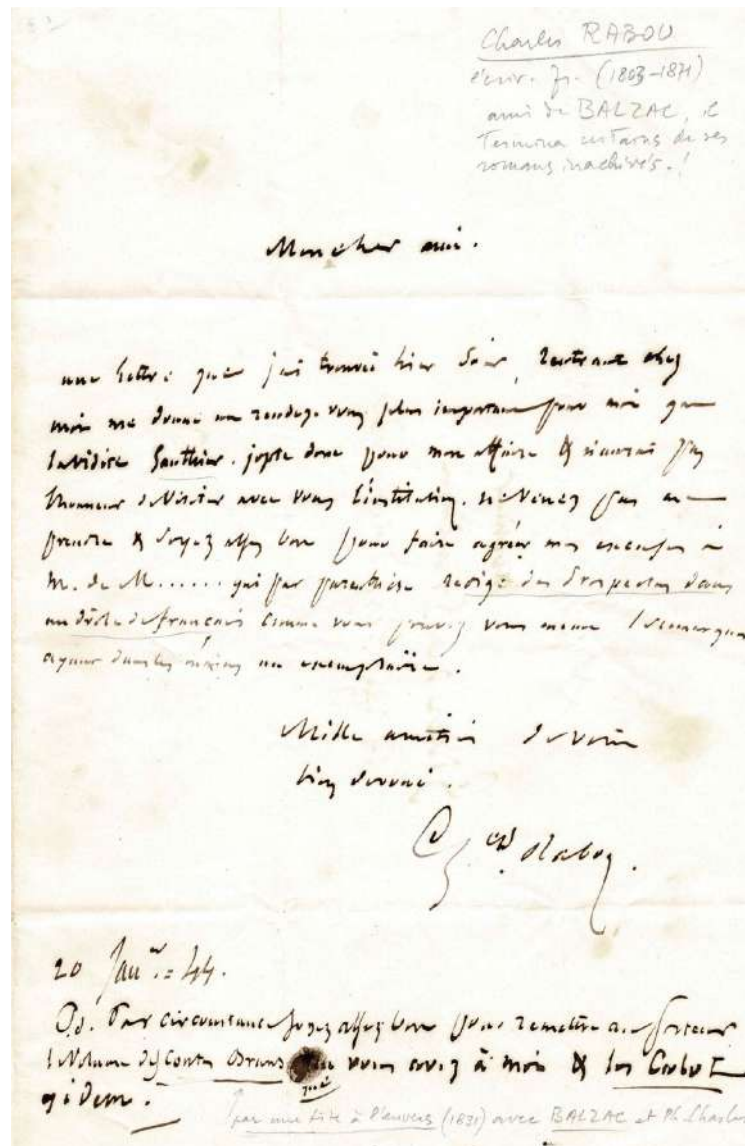 Charles RABOU
écriv. fr. (1803-1871)
ami de BALZAC, il
termina certains de ses
romans inachevés.!
Mon cher ami.
une lettre que j'ai trouvée hier soir, rentrant chez
moi me donne un rendez vous plus important pour moi que
Gauthier. j'opte donc pour mon affaire & n'aurai pas
l'honneur de visiter avec vous l'institution. ne venez pas me
prendre & soyez assez bon pour faire agréer mes excuses à
M. de M...... qui par parenthèse rédige des prospectus dans
un drôle de français comme vous pouvez vous même
un exemplaire.
Mille amitiés de votre
bien dévoué.
Ch. Ed. Rabou.
20 Janer. = 44.
Ps. Par circonstance soyez assez bon pour remettre au porteur
le Volume des Contes Bruns que vous avez à moi &
par une tête à l'envers (1831) avec BALZAC et Ph. Chasles